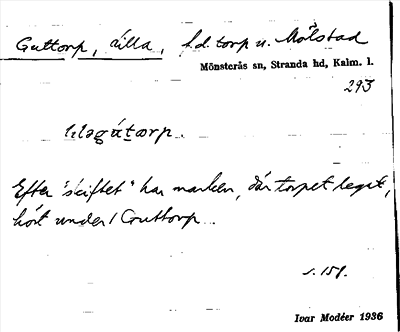 Guttorp, Lilla, f.d. torp u. Mölstad
Mönsterås sn, Stranda hd, Kalm. l.
293
Efter "skiftet" har marken, där torpet legat,
hört under Guttorp.
s. 151.
Ivar Modéer 1936